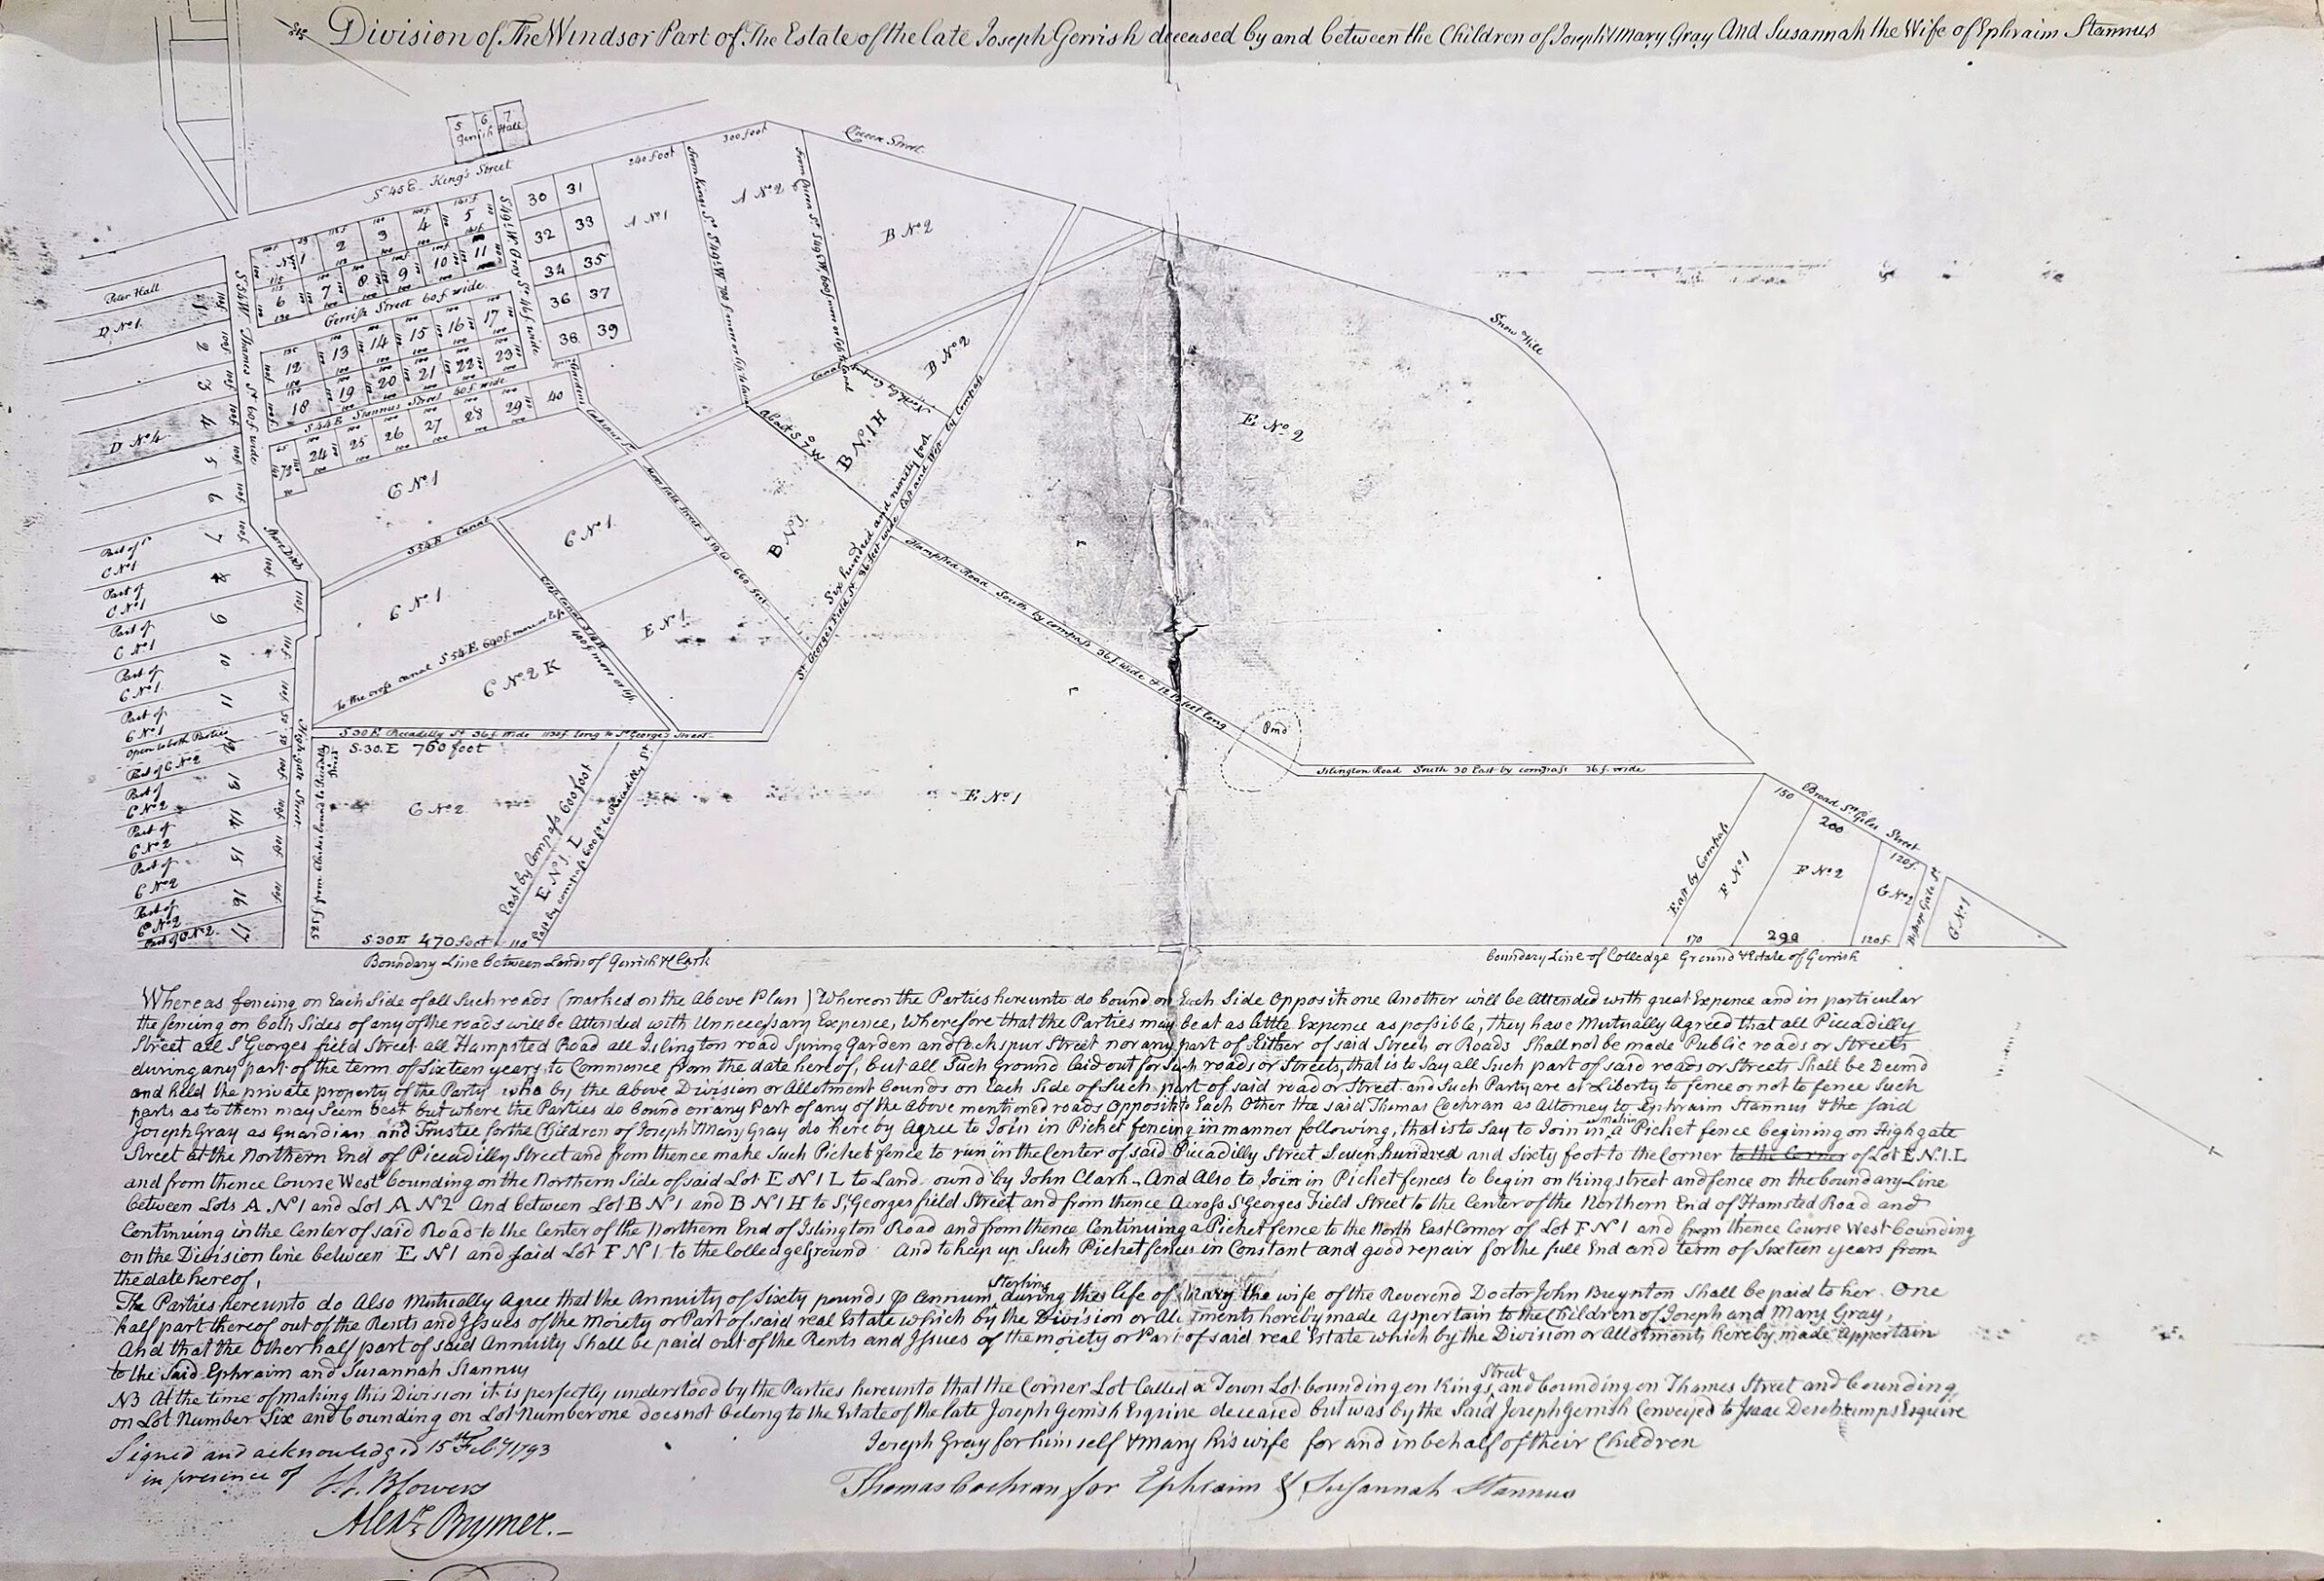 Division of The Windsor Part of The Estate of the late Joseph Gerrish deceased by and between the Children of Joseph & Mary Gray And Susannah the Wife of Ephraim Stannus
5 6 7
Gerrish Hall
S 45 E King's Street
240 foot
300 foot
Queen Street
30 31
32 33
34 35
36 37
38 39
A No 1
A No 2
B No 2
No 1 2 3 4 5
6 7 8 9 10 11
Gerrish Street 60 f. wide
12 13 14 15 16 17
18 19 20 21 22 23
S 44 E Stannus Street 40 f wide
24 25 26 27 28 29 40
Peter Hall
D No 1
D No 4
1
2
3
4
5
6
7
8
9
10
11
12
13
14
15
16
17
Thames St 60 f wide
Canal
B No 2
B No 1 H
B No 1
about S 70 W
Snow Hill
E No 2
C No 1
S 54 E Canal
C No 1
C No 1
To the cross canal S 54 E 600 f. more or less
E No 1
C No 2 K
Six hundred and ninety foot
Hampsted Road South by compass 36 f. wide
Pond
Islington Road South 30 East by compass 36 f. wide
S 30 E Piccadilly St 36 f. wide
S. 30. E 760 foot
High gate Street
Part of
C No 1
Part of
C No 1
Part of
C No 1
Part of
C No 1
Part of
C No 1
Open to both Parties
Part of C No 2
Part of
C No 2
Part of
C No 2
Part of
C No 2
Part of
C No 2
Part of C No 2
C No 2
East by Compass 600 foot
E No 1 L
E No 1
150
Broad St Giles Street
200
120 f.
East by Compass
F No 1
F No 2
G No 2
G No 1
S 30 E 470 foot
110
170
290
120 f.
Boundary Line between Lands of Gerrish & Clark
Boundary Line of Colledge Ground & Estate of Gerrish
Whereas fencing on Each Side of all Such roads (marked on the Above Plan) Whereon the Parties hereunto do bound on Each Side Opposit one Another will be Attended with great Expence and in particular
the fencing on both Sides of any of the roads will be Attended with Unnecessary Expence, Wherefore that the Parties may be at as little Expence as possible, they have Mutually Agreed that all Piccadilly
Street all St Georges field Street all Hampsted Road all Islington road Spring Garden and Cockspur Street nor any part of Either of said Streets or Roads Shall not be made Public roads or Streets
during any part of the term of Sixteen years to Commence from the date hereof, but all Such Ground laid out for Such roads or Streets, that is to Say all Such part of said roads or Streets Shall be Deemd
and held the private property of the Party who by the Above Division or Allotment bounds on Each Side of Such part of said road or Street and Such Party are at Liberty to fence or not to fence Such
parts as to them may Seem best but where the Parties do bound on any Part of any of the Above mentioned roads Opposite to Each Other the said Thomas Cochran as Attorney to Ephraim Stannus & the said
Joseph Gray as Guardian and Trustee for the Children of Joseph & Mary Gray do here by Agree to Join in Picket fencing in manner following, that is to Say to Join in making a Picket fence begining on High gate
Street at the Northern End of Piccadilly Street and from thence make Such Picket fence to run in the Center of said Piccadilly Street Seven hundred and Sixty foot to the Corner to the Corner of Lot E. N. 1. L
and from thence Course West bounding on the Northern Side of said Lot E N 1 L to Land ownd by John Clark And Also to Join in Picket fences to begin on King street and fence on the boundary Line
between Lots A N 1 and Lot A N 2 And between Lot B N 1 and B N 1 H to St Georges field Street and from thence Across St Georges Field Street to the Center of the Northern End of Hamsted Road and
Continuing in the Center of said Road to the Center of the Northern End of Islington Road and from thence Continuing a Picket fence to the North East Corner of Lot F N 1 and from thence Course West bounding
on the Division line between E N 1 and said Lot F N 1 to the Colleage Ground And to keep up Such Picket fences in Constant and good repair for the full End and term of Sixteen years from
the date hereof,
The Parties hereunto do Also Mutually Agree that the Annuity of Sixty pounds Sterling P Annum, during the life of Mary the wife of the Reverend Doctor John Breynton Shall be paid to her. One
half part thereof out of the Rents and Issues of the Moiety or Part of said real Estate which by the Division or Allotments hereby made Appertain to the Children of Joseph and Mary Gray,
And that the Other half part of said Annuity Shall be paid out of the Rents and Issues of the moiety or Part of said real Estate which by the Division or Allotments hereby made Appertain
to the Said Ephraim and Susannah Stannus
NB At the time of making this Division it is perfectly understood by the Parties hereunto that the Corner Lot Called a Town Lot bounding on Kings Street and bounding on Thames Street and bounding
on Lot Number Six and bounding on Lot Number one does not belong to the Estate of the late Joseph Gerrish Esquire deceased but was by the Said Joseph Gerrish Conveyed to Isaac Deschamps Esquire
Signed and acknowledged 15th Feby 1793
in presence of
S. S. Blowers
Alexr Brymer.
Joseph Gray for him self & Mary his wife for and in behalf of their Children
Thomas Cochran for Ephraim & Susannah Stannus